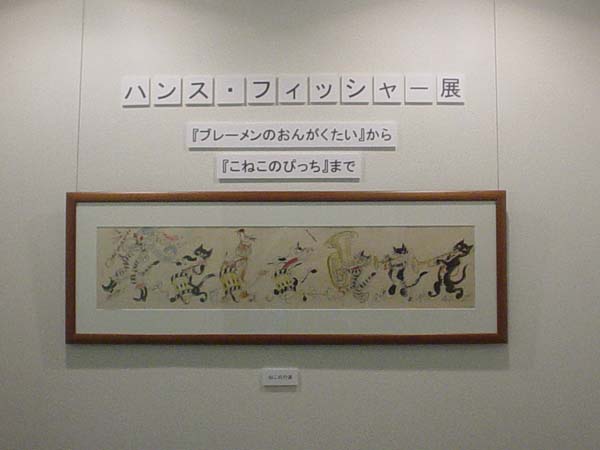 ハンス・フィッシャー展
『ブレーメンのおんがくたい』から
『こねこのぴっち』まで